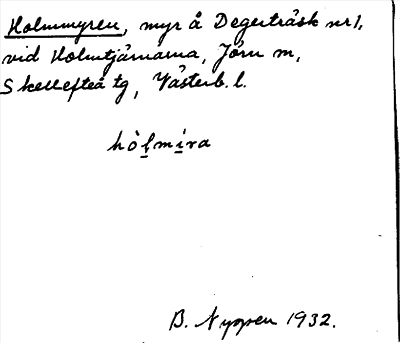 Holmmyren, myr å Degerträsk nr 1,
vid Holmtjärnarna, Jörn m,
Skellefteå tg, Västerb. l.
hòl̲mi̲ra
B. Nyppen 1932.